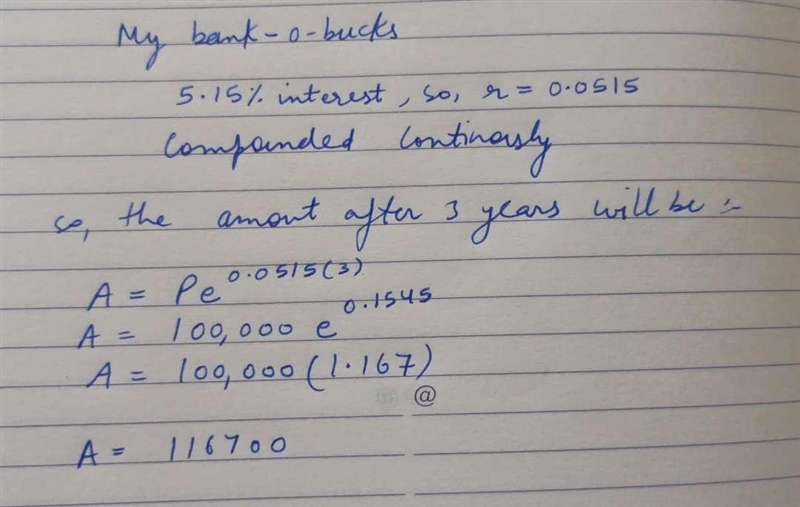 My bank-o-bucks
5.15% interest, so, r = 0.0515
Compounded Continously
so, the amount after 3 years will be :-
A = Pe^0.0515(3)
A = 100,000 e^0.1545
A = 100,000 (1.167)
@
A = 116700